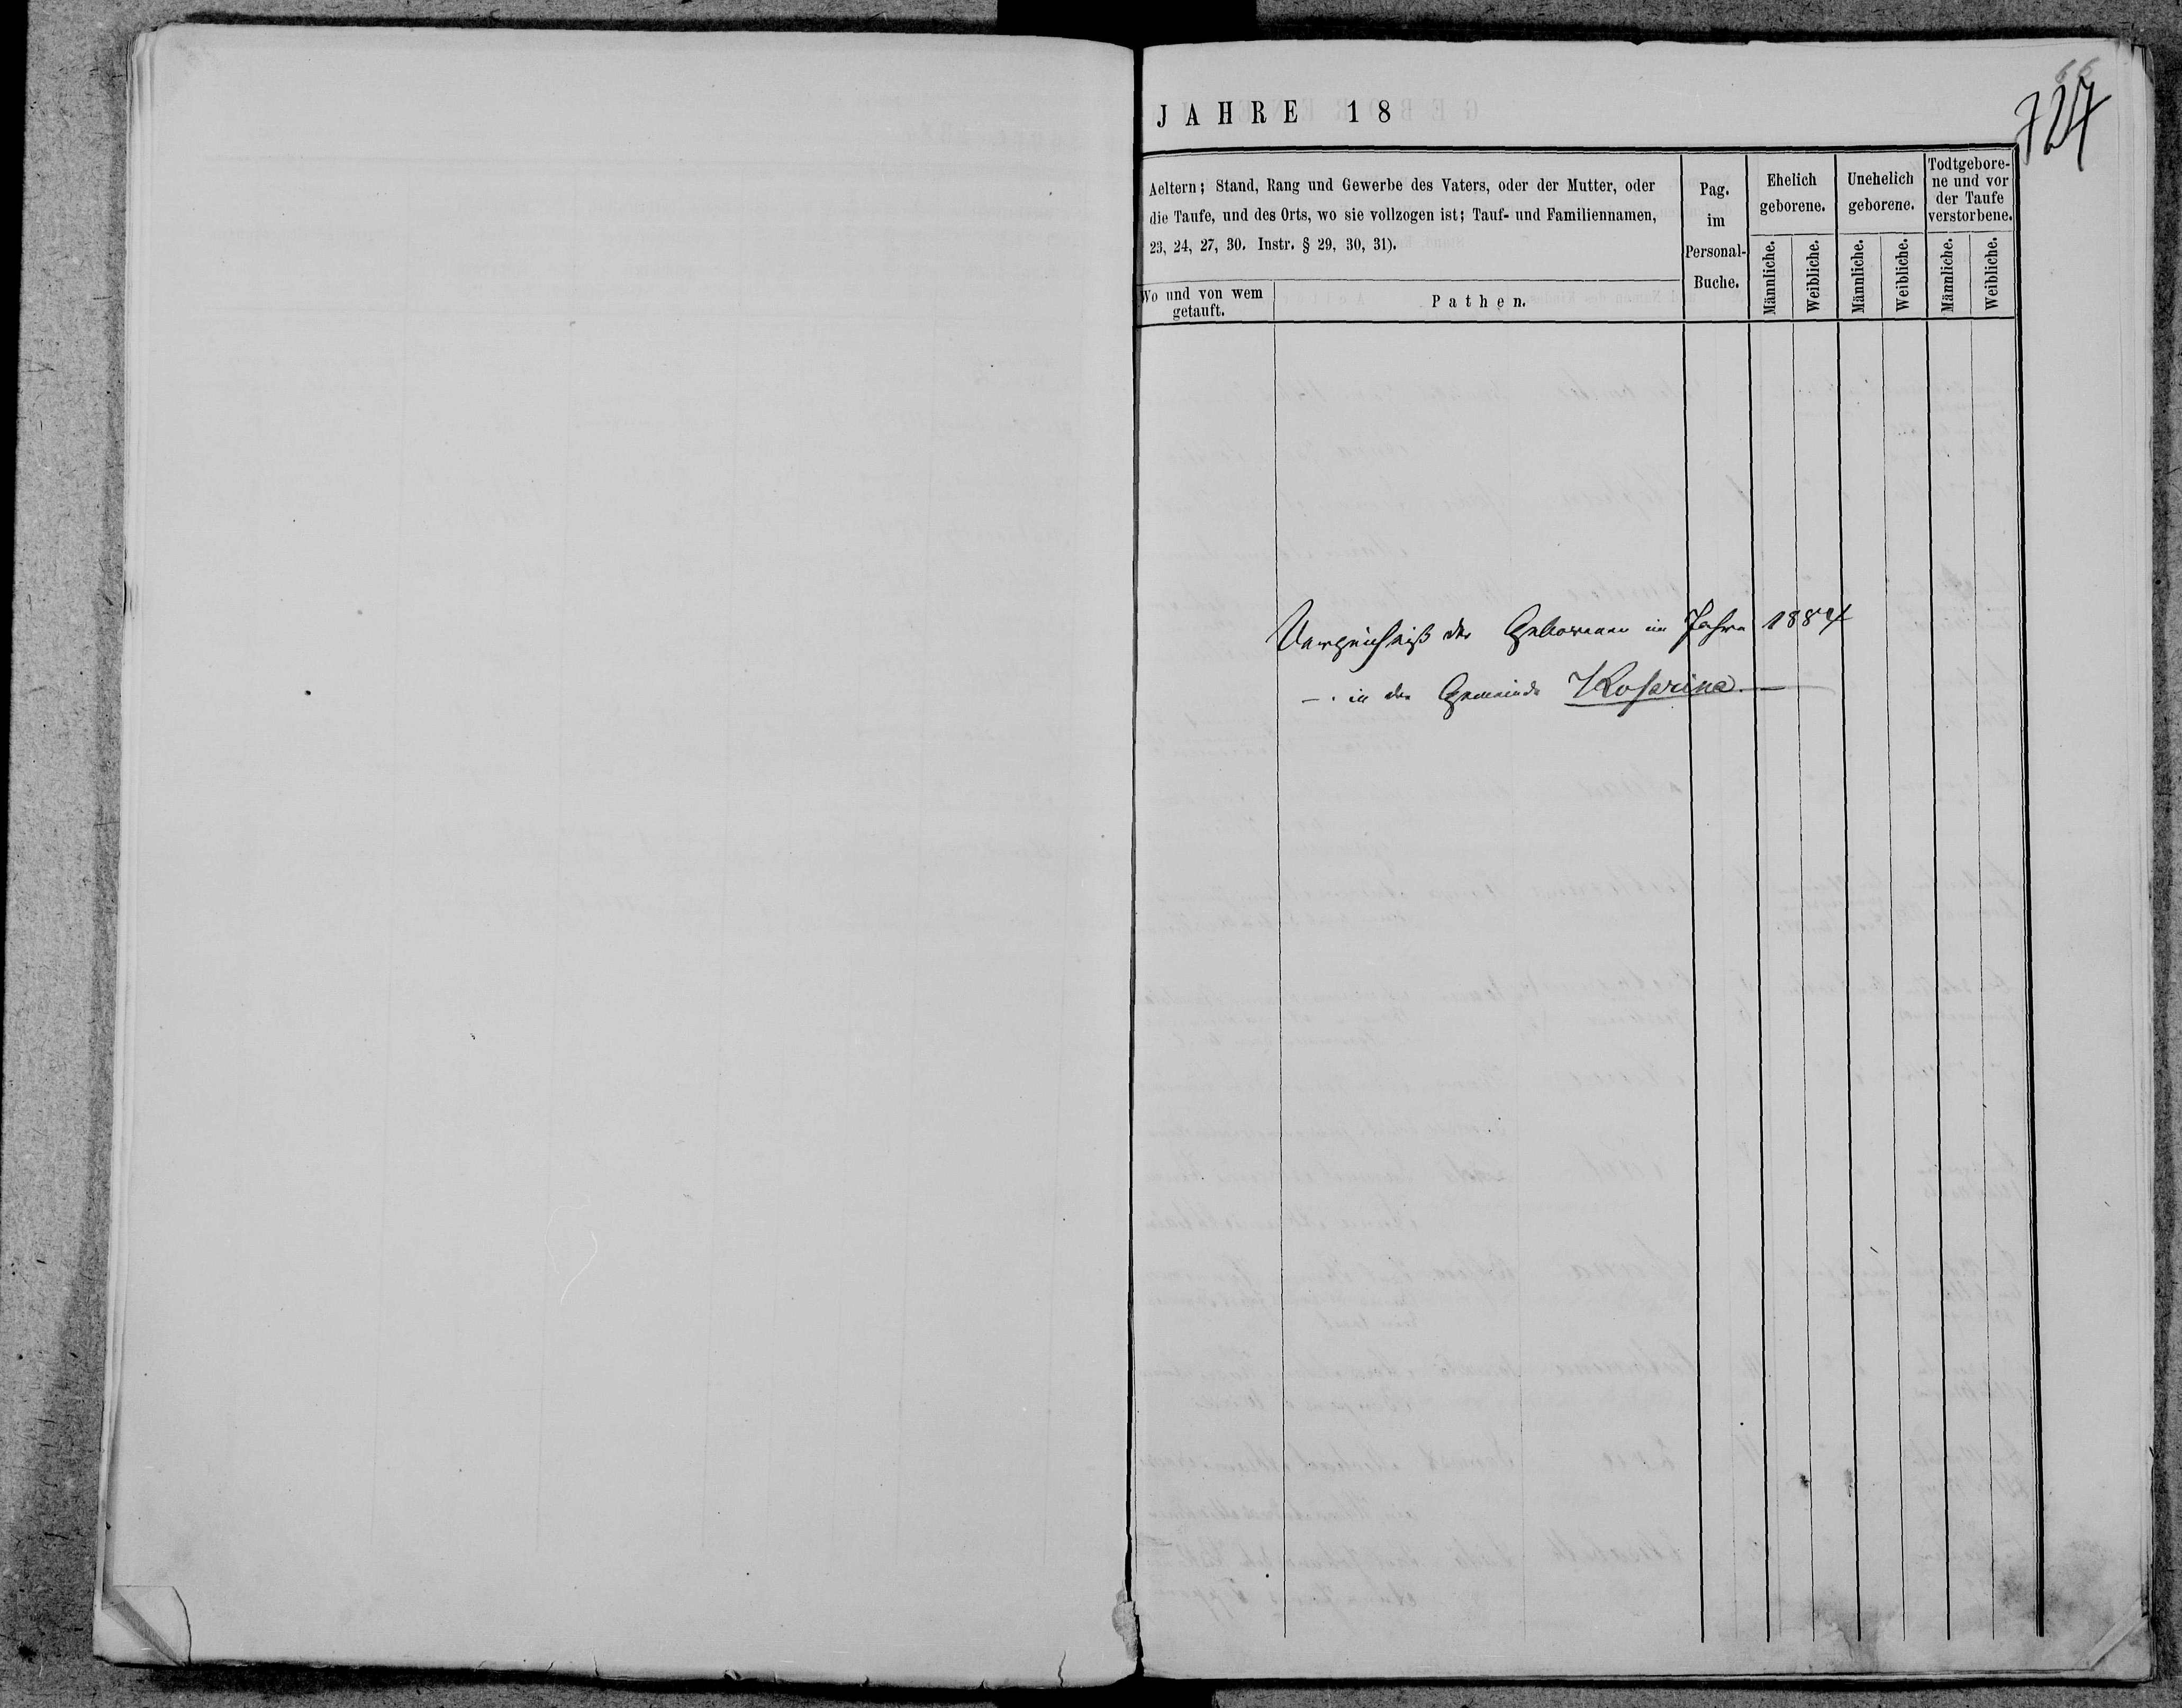 66
727
JAHRE 18
Aeltern; Stand, Rang und Gewerbe des Vaters, oder der Mutter, oder
die Taufe, und des Orts, wo sie vollzogen ist; Tauf- und Familiennamen,
23, 24, 27, 30. Instr. § 29, 30, 31).
Wo und von wem
getauft.
Pathen.
Pag.
im
Personal-
Buche.
Ehelich
geborene.
Unehelich
geborene.
Todtgebore-
ne und vor
der Taufe
verstorbene.
Männliche.
Weibliche.
Männliche.
Weibliche.
Männliche.
Weibliche.
Verzeichniß der Geborenen im Jahre 1884
in der Gemeinde Koserina.